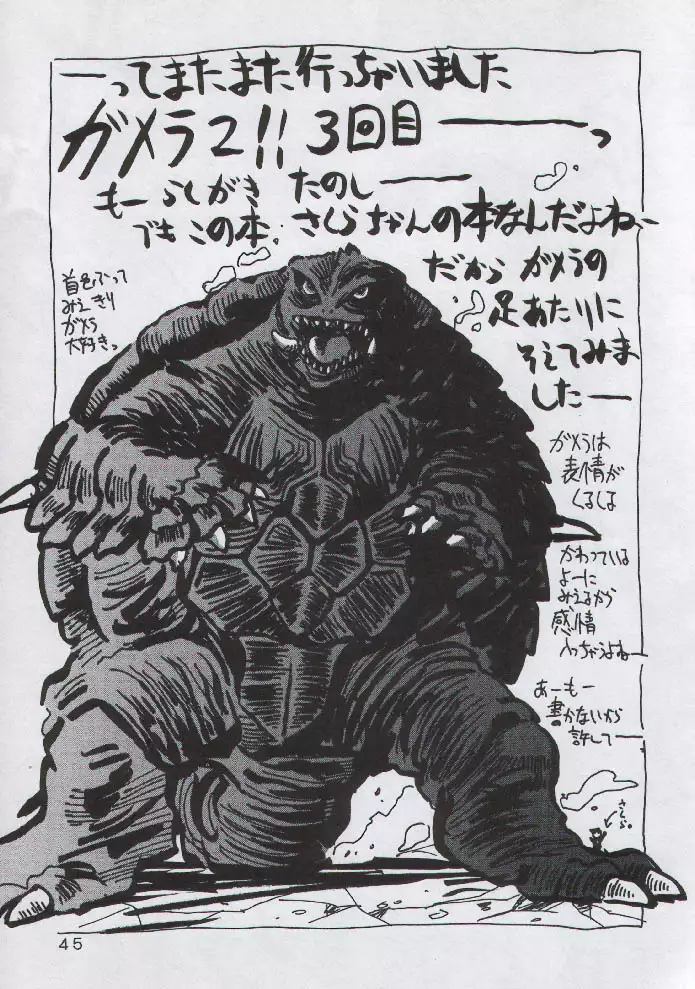 ―ってまたまた行っちゃいました
ガメラ2!! 3回目――っ
もーらしがき たのし――
でもこの本、さくらちゃんの本なんだよね、
だから ガメラの
足あたりに
そえてみま
した―
首をふって
みえきり
ガメラ
大好きっ
ガメラは
表情が
くるしる
かわっている
よーに
みえるから
感情
入っちゃうよねー
あーもー
書かないから
許して―
さくら。
45